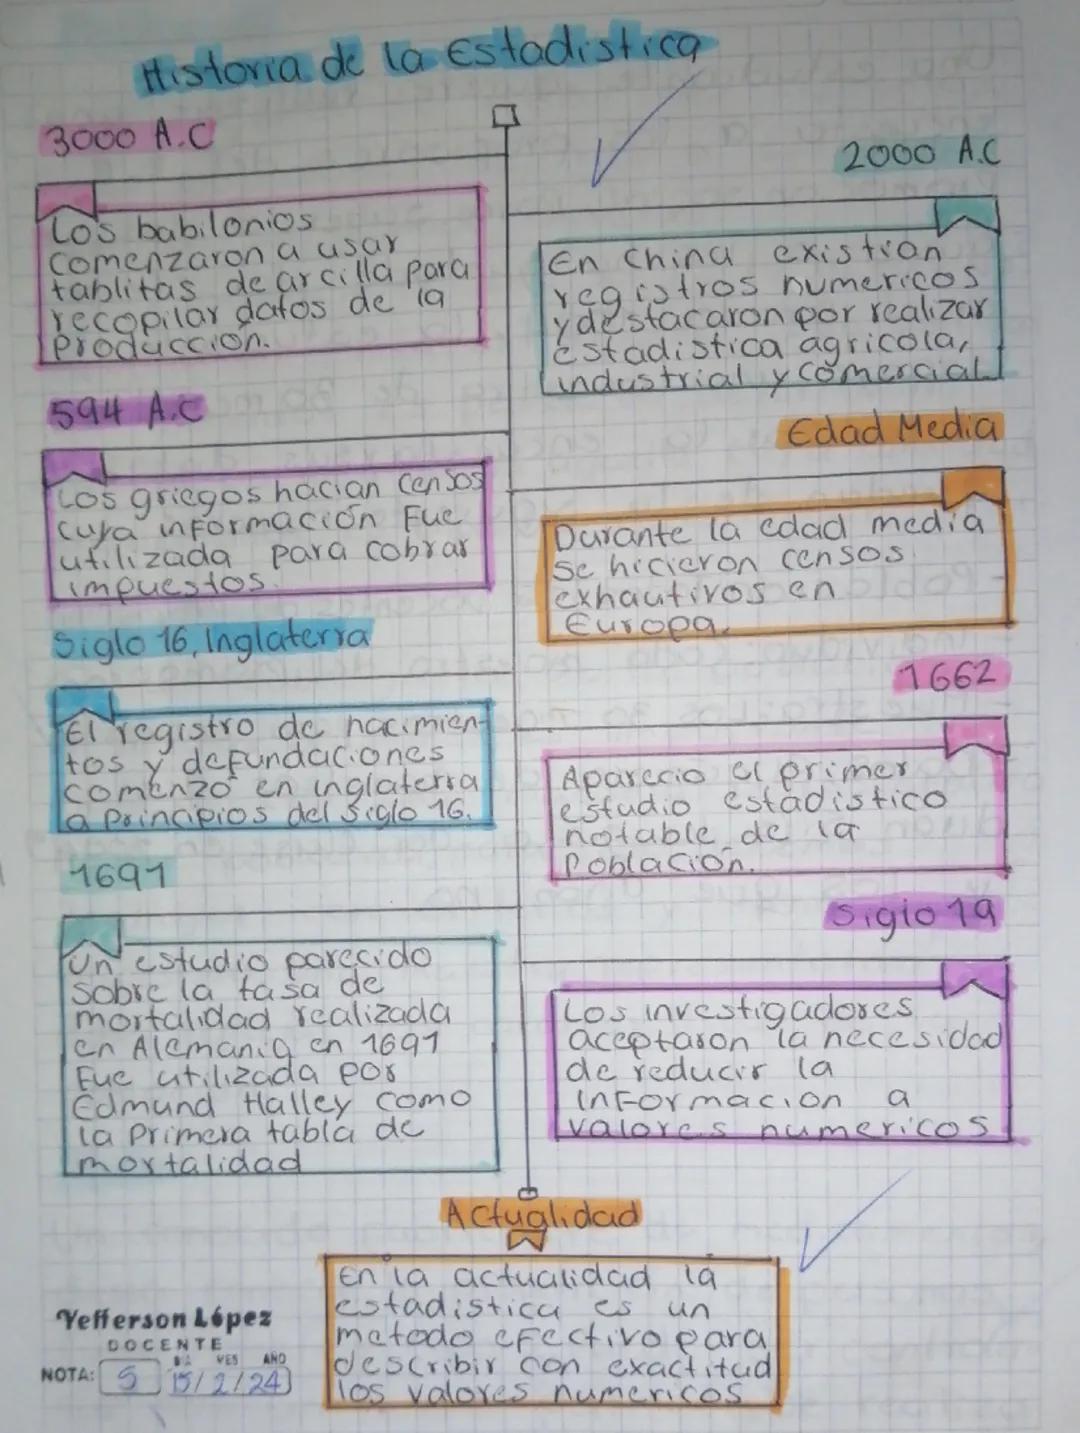 Historia de la Estadistica
3000 A.C
Los babilonios
comenzaron a usar
tablitas de arcilla para
recopilar datos de la
Produccion.
2000 A.C
En China existian
registros numericos
y destacaron por realizar
estadistica agricola,
industrial y comercial
594 A.C
Los griegos hacian censos
cuya informacion fue
utilizada para cobrar
impuestos.
Edad Media
Durante la edad media
se hicieron censos
exhautivos en
Europa.
Siglo 16, Inglaterra
El registro de nacimien-
tos y defundaciones
comenzo en inglaterra
a Principios del siglo 16.
1662
Aparecio el primer
estudio estadistico
notable de la
Poblacion.
1691
Un estudio parecido
sobre la tasa de
mortalidad realizada
en Alemania en 1691
Fue utilizada por
Edmund Halley como
la Primera tabla de
mortalidad
Siglo 19
Los investigadores
aceptaron la necesidad
de reducir la
informacion a
valores numericos
Actualidad
En la actualidad la
estadistica es un
metodo efectivo para
describir con exactitud
los valores numericos
Yefferson López
DOCENTE
DIA MES AÑO
NOTA: 5 15/2/24